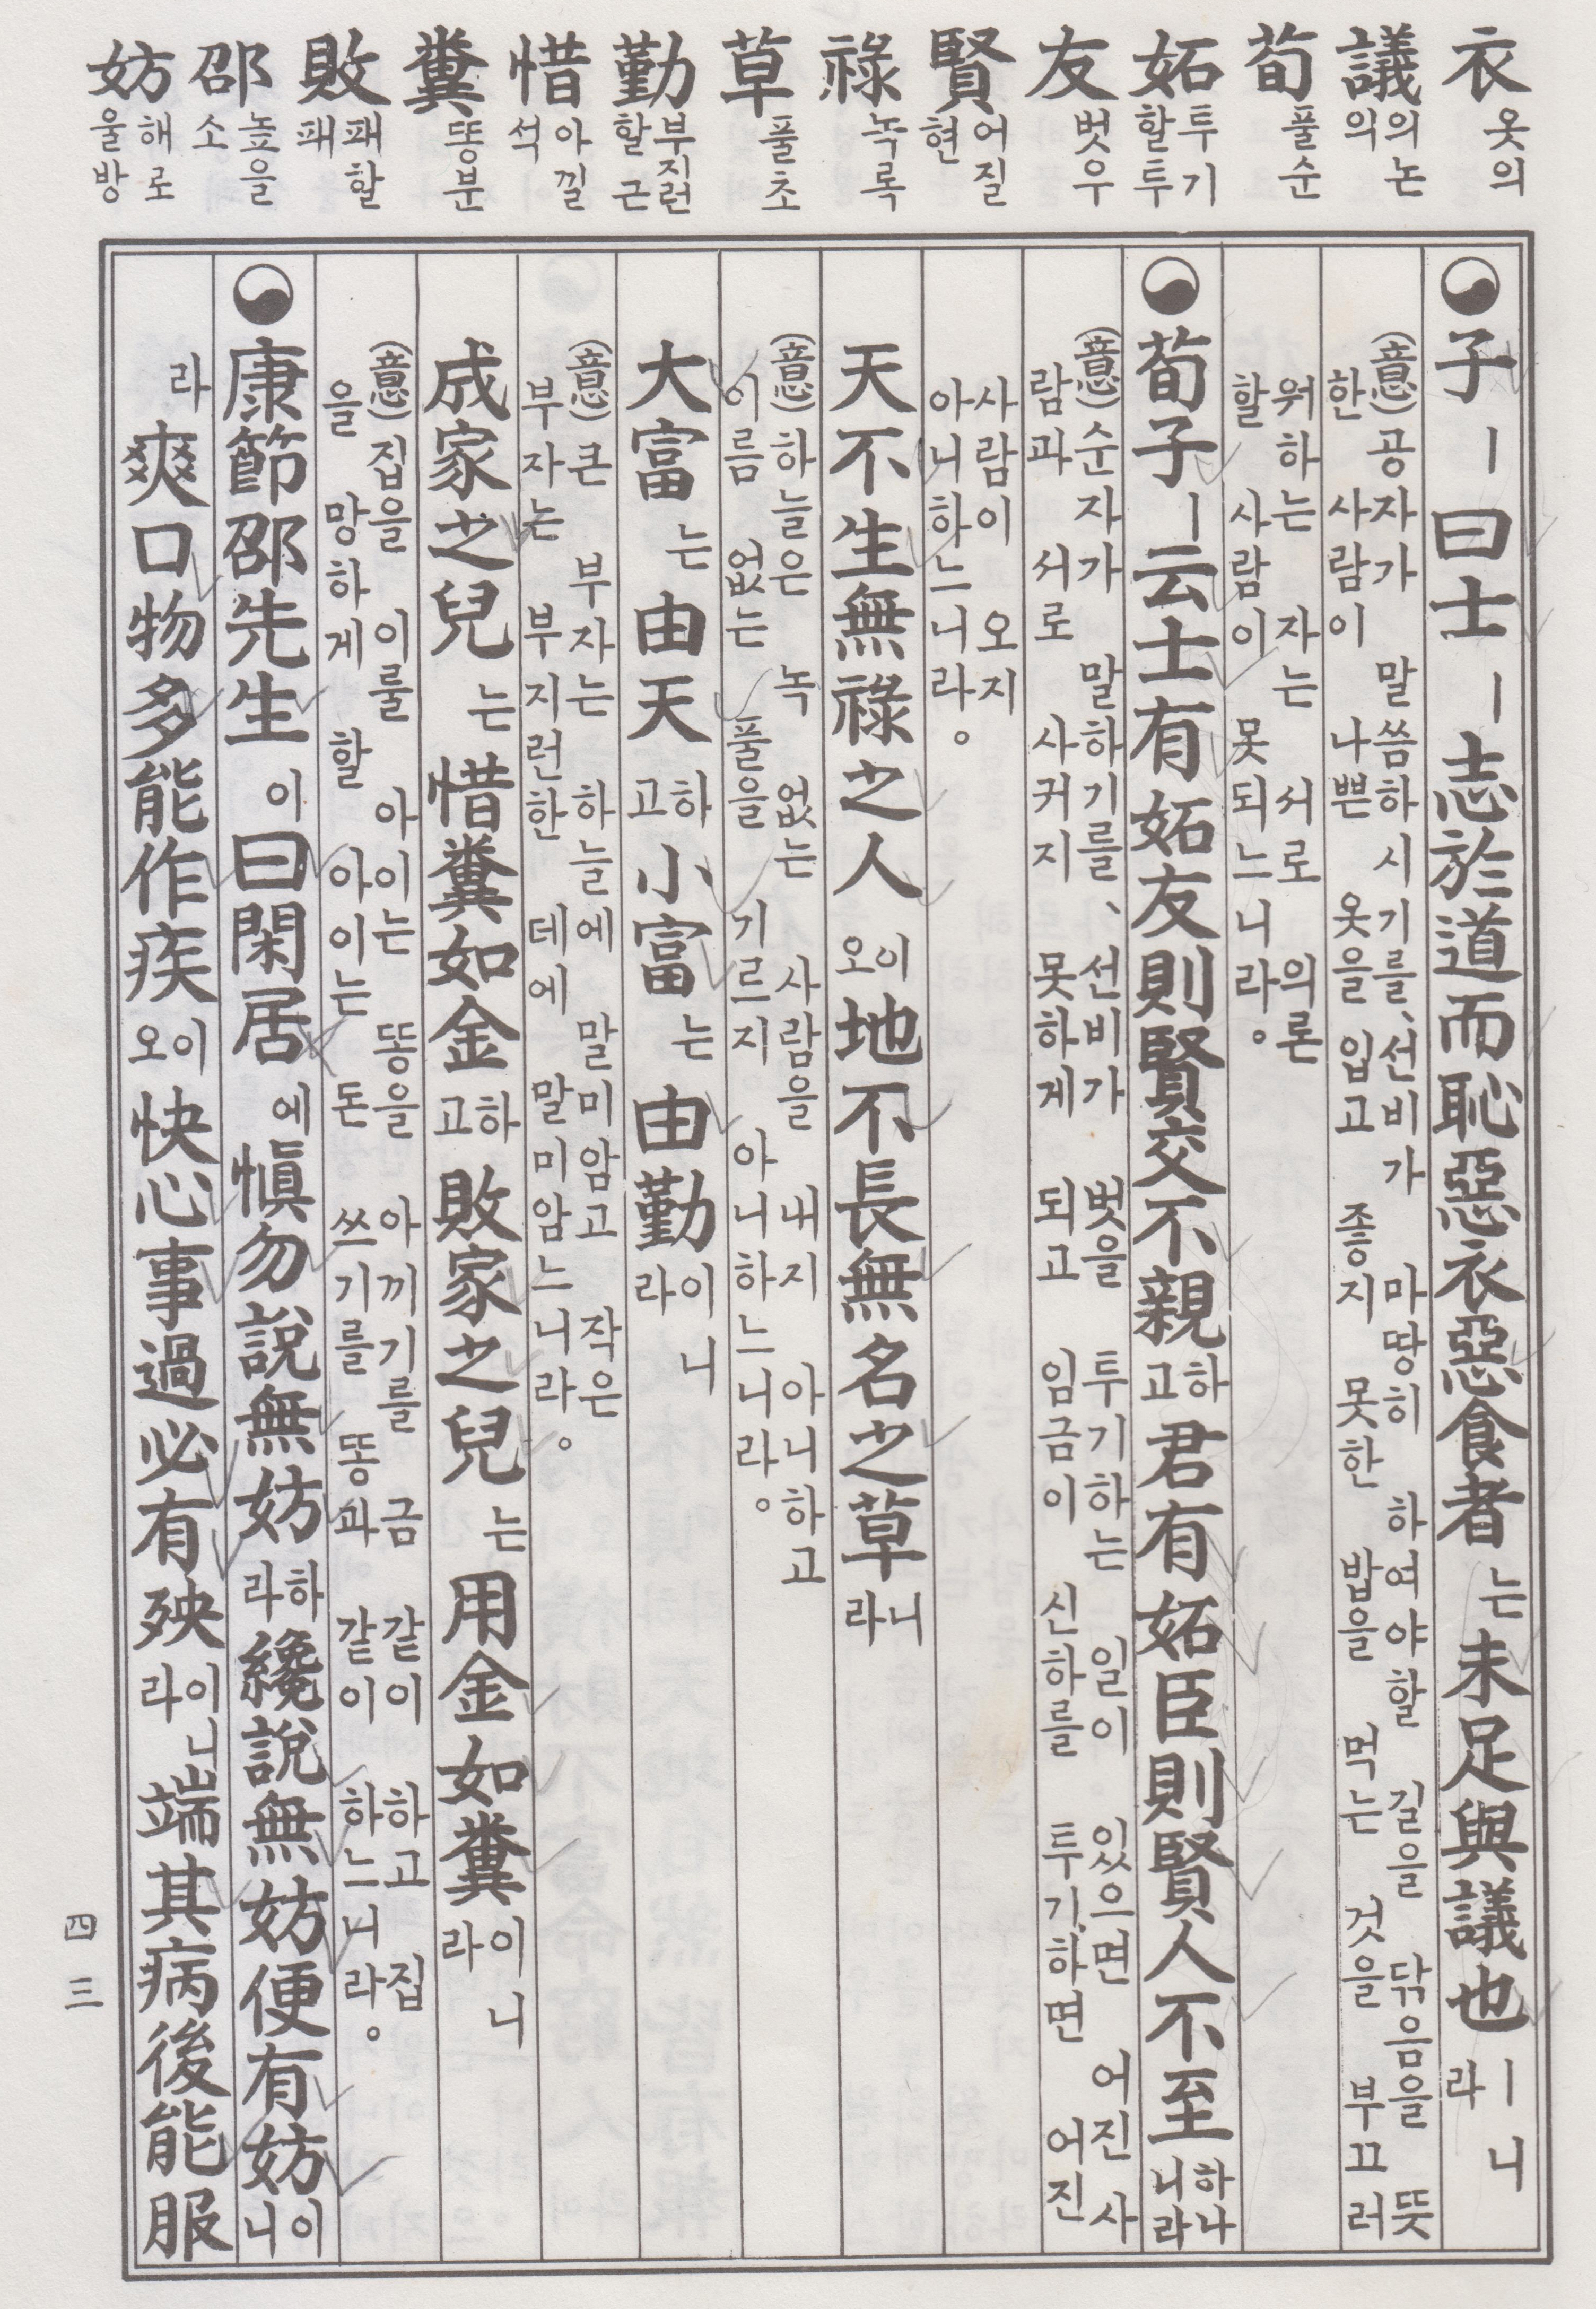 衣 옷의
議 의논의
荀 풀순
妬 투기할투
友 벗우
賢 어질현
祿 녹록
草 풀초
勤 부지런할근
惜 아낄석
糞 똥분
敗 패할패
邵 높을소
妨 해로울방
子ㅣ曰士ㅣ志於道而恥惡衣惡食者는未足與議也ㅣ니라
(意) 공자가 말씀하시기를, 선비가 마땅히 하여야할 길을 닦음을 뜻
한 사람이 나쁜 옷을 입고 좋지 못한 밥을 먹는 것을 부끄러
워하는 자는 서로 의론
할 사람이 못되느니라。
荀子ㅣ云士有妬友則賢交不親하고君有妬臣則賢人不至하나니라
(意) 순자가 말하기를、 선비가 벗을 투기하는 일이 있으면 어진 사
람과 서로 사귀지 못하게 되고 임금이 신하를 투기하면 어진
사람이 오지
아니하느니라。
天不生無祿之人이오地不長無名之草니라
(意) 하늘은 녹 없는 사람을 내지 아니하고
이름 없는 풀을 기르지 아니하느니라。
大富는由天하고小富는由勤이니라
(意) 큰 부자는 하늘에 말미암고 작은
부자는 부지런한 데에 말미암느니라。
成家之兒는惜糞如金하고敗家之兒는用金如糞이니라
(意) 집을 이룰 아이는 똥을 아끼기를 금 같이 하고 집
을 망하게 할 아이는 돈 쓰기를 똥과 같이 하느니라。
康節邵先生이曰閑居에愼勿說無妨하라纔說無妨便有妨이니
라爽口物多能作疾이오快心事過必有殃이니라端其病後能服
四三